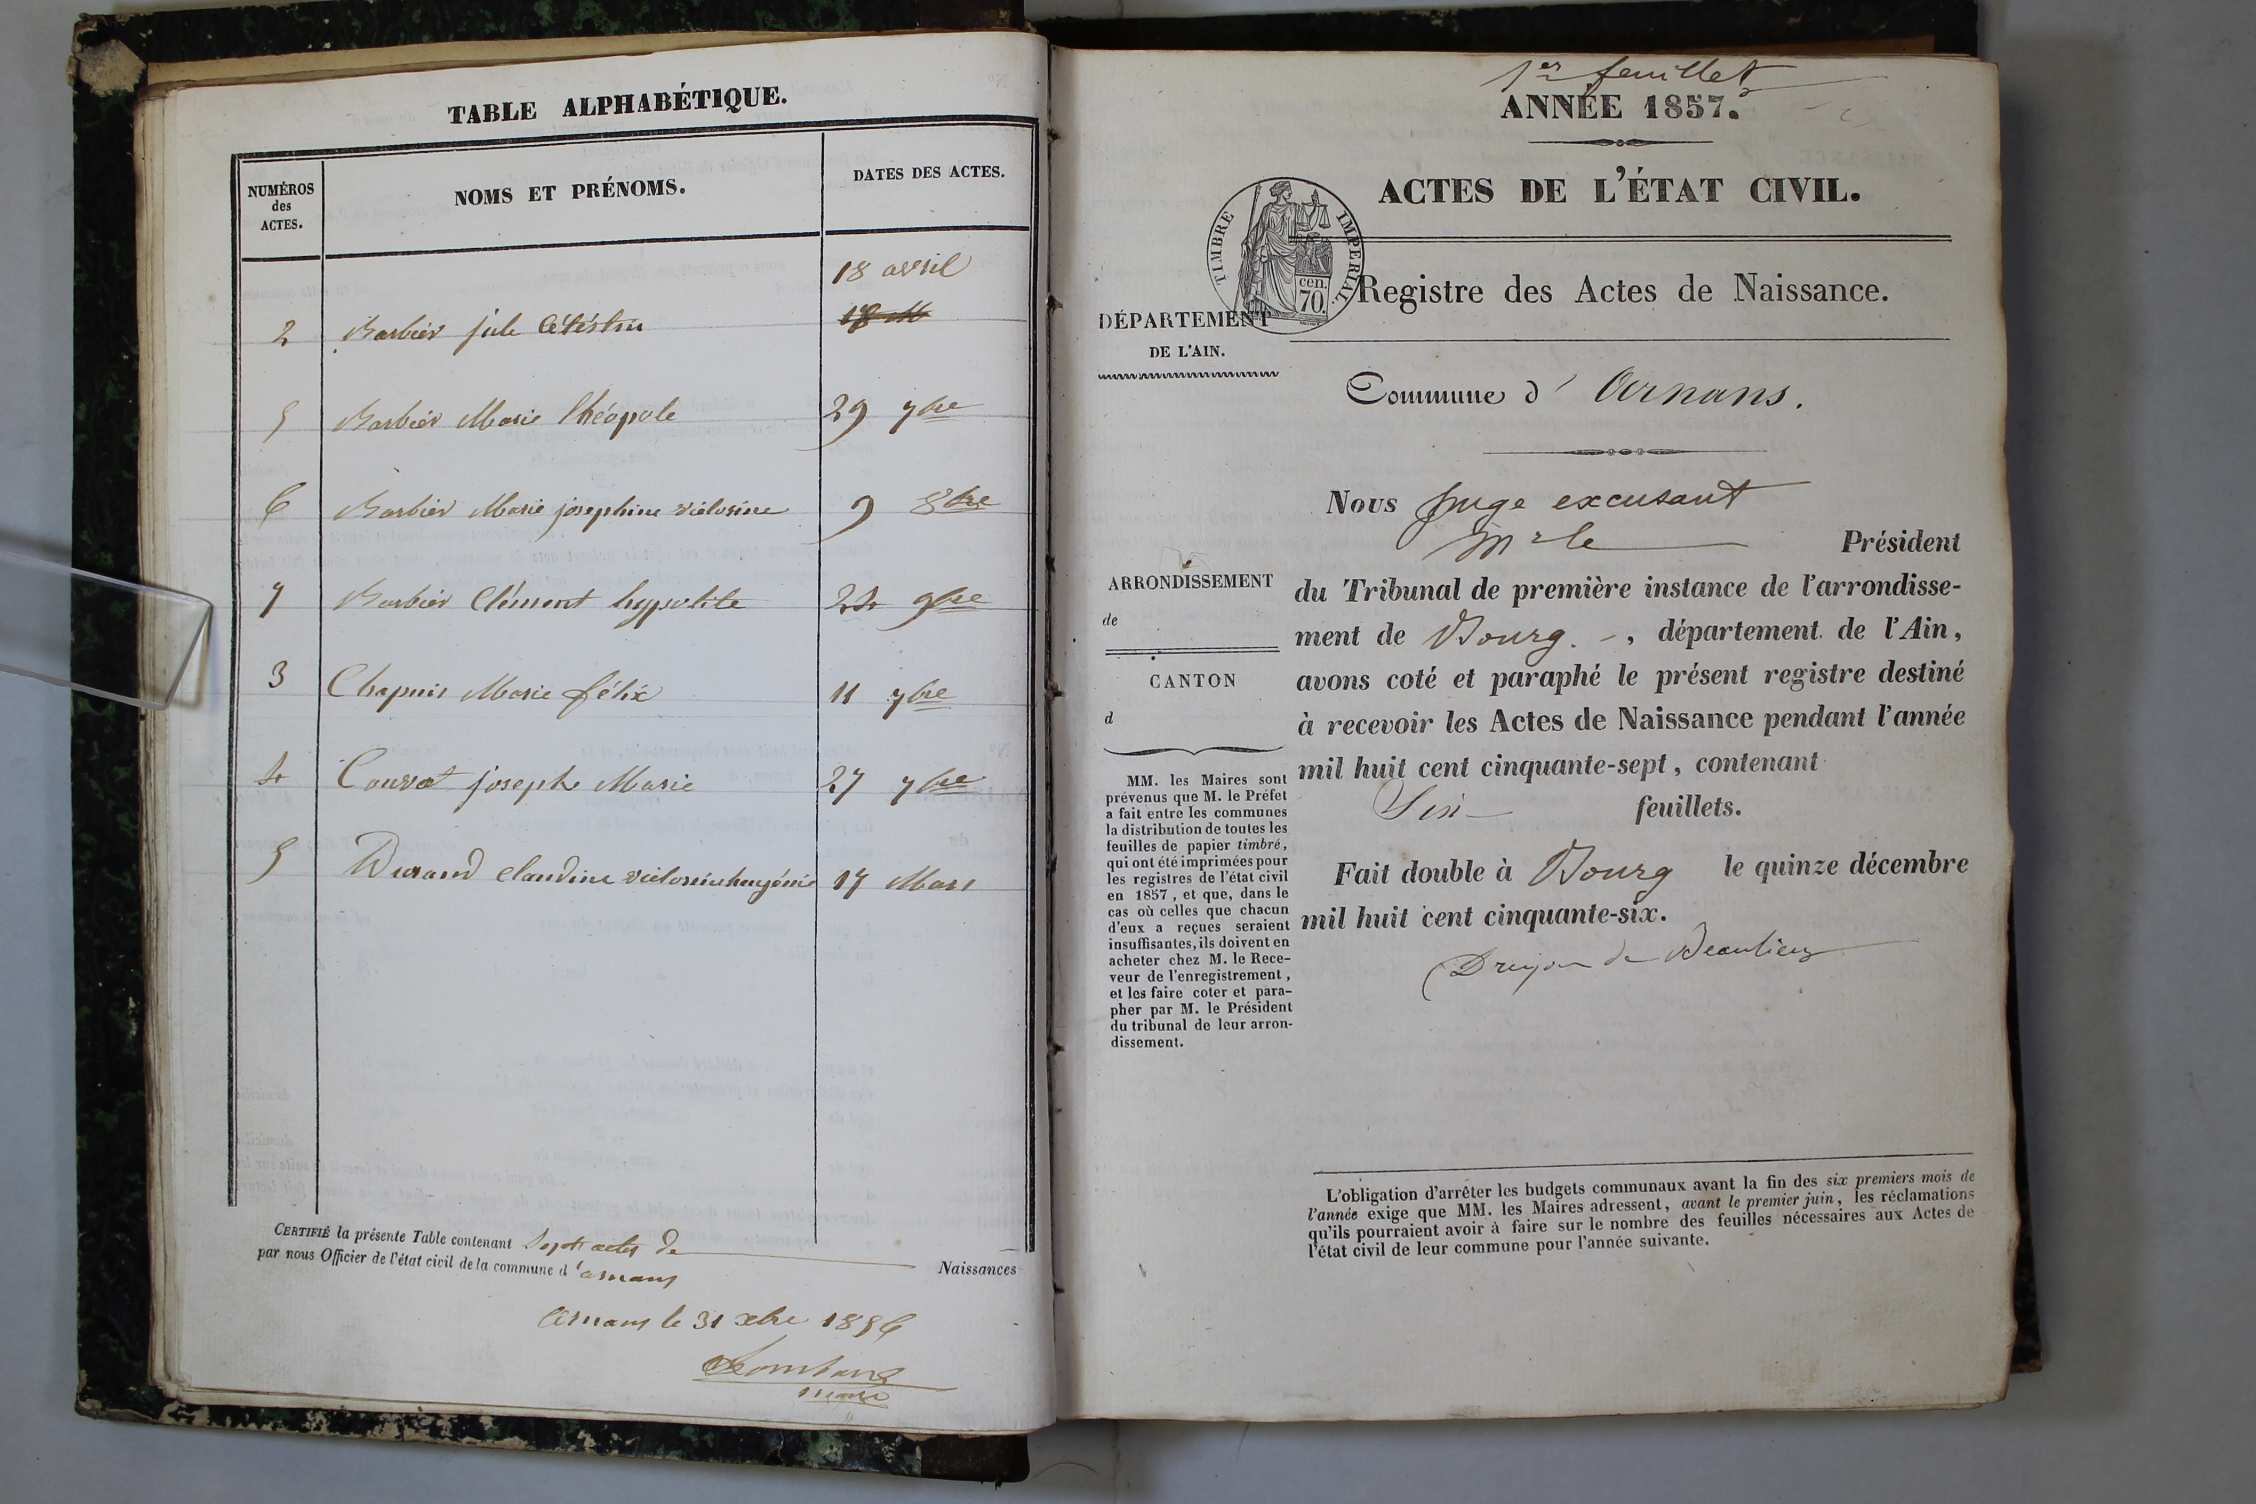 TABLE ALPHABÉTIQUE.
NUMÉROS des ACTES. NOMS ET PRÉNOMS. DATES DES ACTES.
18 avril
2 Barbier jule Célestin 18 M
5 Barbier Marie théopole 29 7bre
6 Barbier Marie josephine victorine 9 8bre
7 Barbier Clément hyppolite 24 9bre
3 Chapuis Marie félix 11 7bre
4 Convat joseph Marie 27 7bre
5 Durand Claudine victorine eugénie 17 Mars
CERTIFIÉ la présente Table contenant Sept actes de Naissances
par nous Officier de l'état civil de la commune d'arnans
arnans le 31 xbre 1856
maire
1er feuillet
ANNÉE 1857.
ACTES DE L'ÉTAT CIVIL.
TIMBRE IMPERIAL.
cen.
70.
Registre des Actes de Naissance.
DÉPARTEMENT
DE L'AIN.
Commune d' Arnans.
Nous Juge excusant
Mr le Président
du Tribunal de première instance de l'arrondisse-
ment de Bourg. -, département de l'Ain,
avons coté et paraphé le présent registre destiné
à recevoir les Actes de Naissance pendant l'année
mil huit cent cinquante-sept, contenant
Six feuillets.
Fait double à Bourg le quinze décembre
mil huit cent cinquante-six.
Druyon de Beaulieu
ARRONDISSEMENT
de
CANTON
d
MM. les Maires sont
prévenus que M. le Préfet
a fait entre les communes
la distribution de toutes les
feuilles de papier timbré,
qui ont été imprimées pour
les registres de l'état civil
en 1857, et que, dans le
cas où celles que chacun
d'eux a reçues seraient
insuffisantes, ils doivent en
acheter chez M. le Rece-
veur de l'enregistrement,
et les faire coter et para-
pher par M. le Président
du tribunal de leur arron-
dissement.
L'obligation d'arrêter les budgets communaux avant la fin des six premiers mois de
l'année exige que MM. les Maires adressent, avant le premier juin, les réclamations
qu'ils pourraient avoir à faire sur le nombre des feuilles nécessaires aux Actes de
l'état civil de leur commune pour l'année suivante.